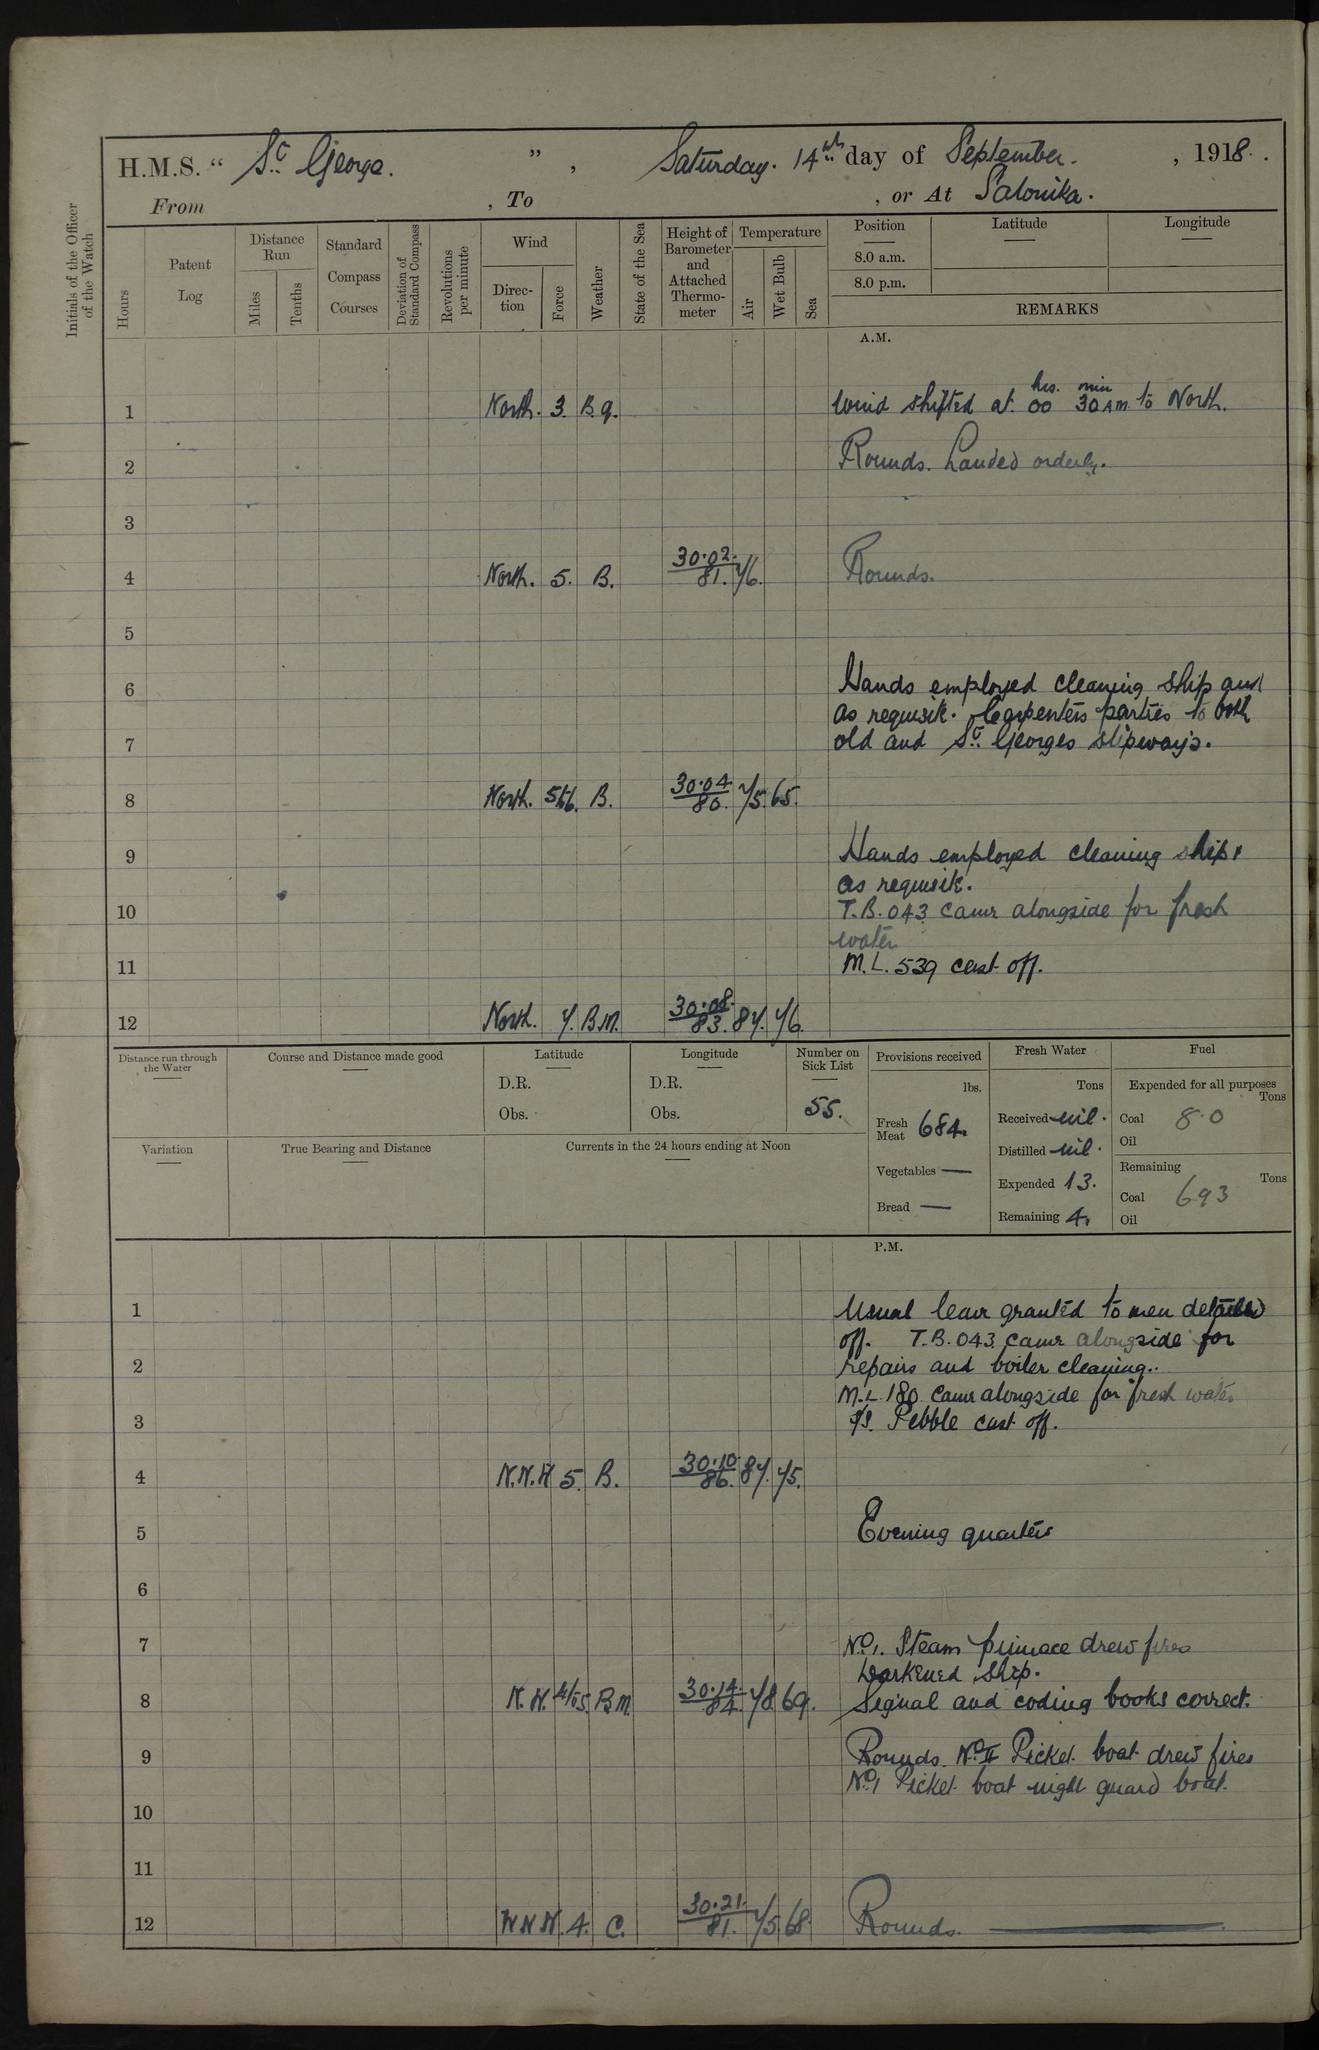 H.M.S. “ St George. ” , Saturday. 14th day of September. , 1918.
From , To , or At Salonika.
Initials of the Officer of the Watch
Hours
Patent Log
Distance Run
Miles
Tenths
Standard Compass Courses
Deviation of Standard Compass
Revolutions per minute
Wind
Direction
Force
Weather
State of the Sea
Height of Barometer and Attached Thermometer
Temperature
Air
Wet Bulb
Sea
Position
8.0 a.m.
8.0 p.m.
Latitude
Longitude
REMARKS
A.M.
1 North. 3. B.q. Wind shifted at 00 hrs. 30 min A.M. to North.
2 Rounds. Landed orderly.
3
4 North. 5. B. 30.02. 81. 76. Rounds.
5
6 Hands employed cleaning ship and
as requisite. Carpenters parties to both
7 old and St Georges slipways.
8 North. 5to6. B. 30.04 80. 75. 65.
9 Hands employed cleaning ship &
as requisite.
10 T.B. 043 came alongside for fresh
water
11 M.L. 539 cast off.
12 North. 7. B.M. 30.08. 83. 87. 76.
Distance run through the Water
Course and Distance made good
Latitude
D.R.
Obs.
Longitude
D.R.
Obs.
Number on Sick List
55.
Provisions received
lbs.
Fresh Meat 684.
Vegetables —
Bread —
Fresh Water
Tons
Received nil.
Distilled nil.
Expended 13.
Remaining 4.
Fuel
Expended for all purposes
Tons
Coal 80
Oil
Remaining
Tons
Coal 693
Oil
Variation
True Bearing and Distance
Currents in the 24 hours ending at Noon
P.M.
1 Usual leave granted to men detailed
off. T.B. 043 came alongside for
2 repairs and boiler cleaning.
M.L. 180 came alongside for fresh water
3 Pebble cast off.
4 N.N.W 5. B. 30.10 86. 87. 75.
5 Evening quarters
6
7 No 1. Steam pinnace drew fires
Darkened Ship.
8 N.W. 4to5 B.M. 30.14. 84. 78. 69. Signal and coding books correct.
9 Rounds. No II Picket boat drew fires
No 1 Picket boat night guard boat.
10
11
12 WNW. 4. C. 30.21. 81. 75. 68. Rounds.